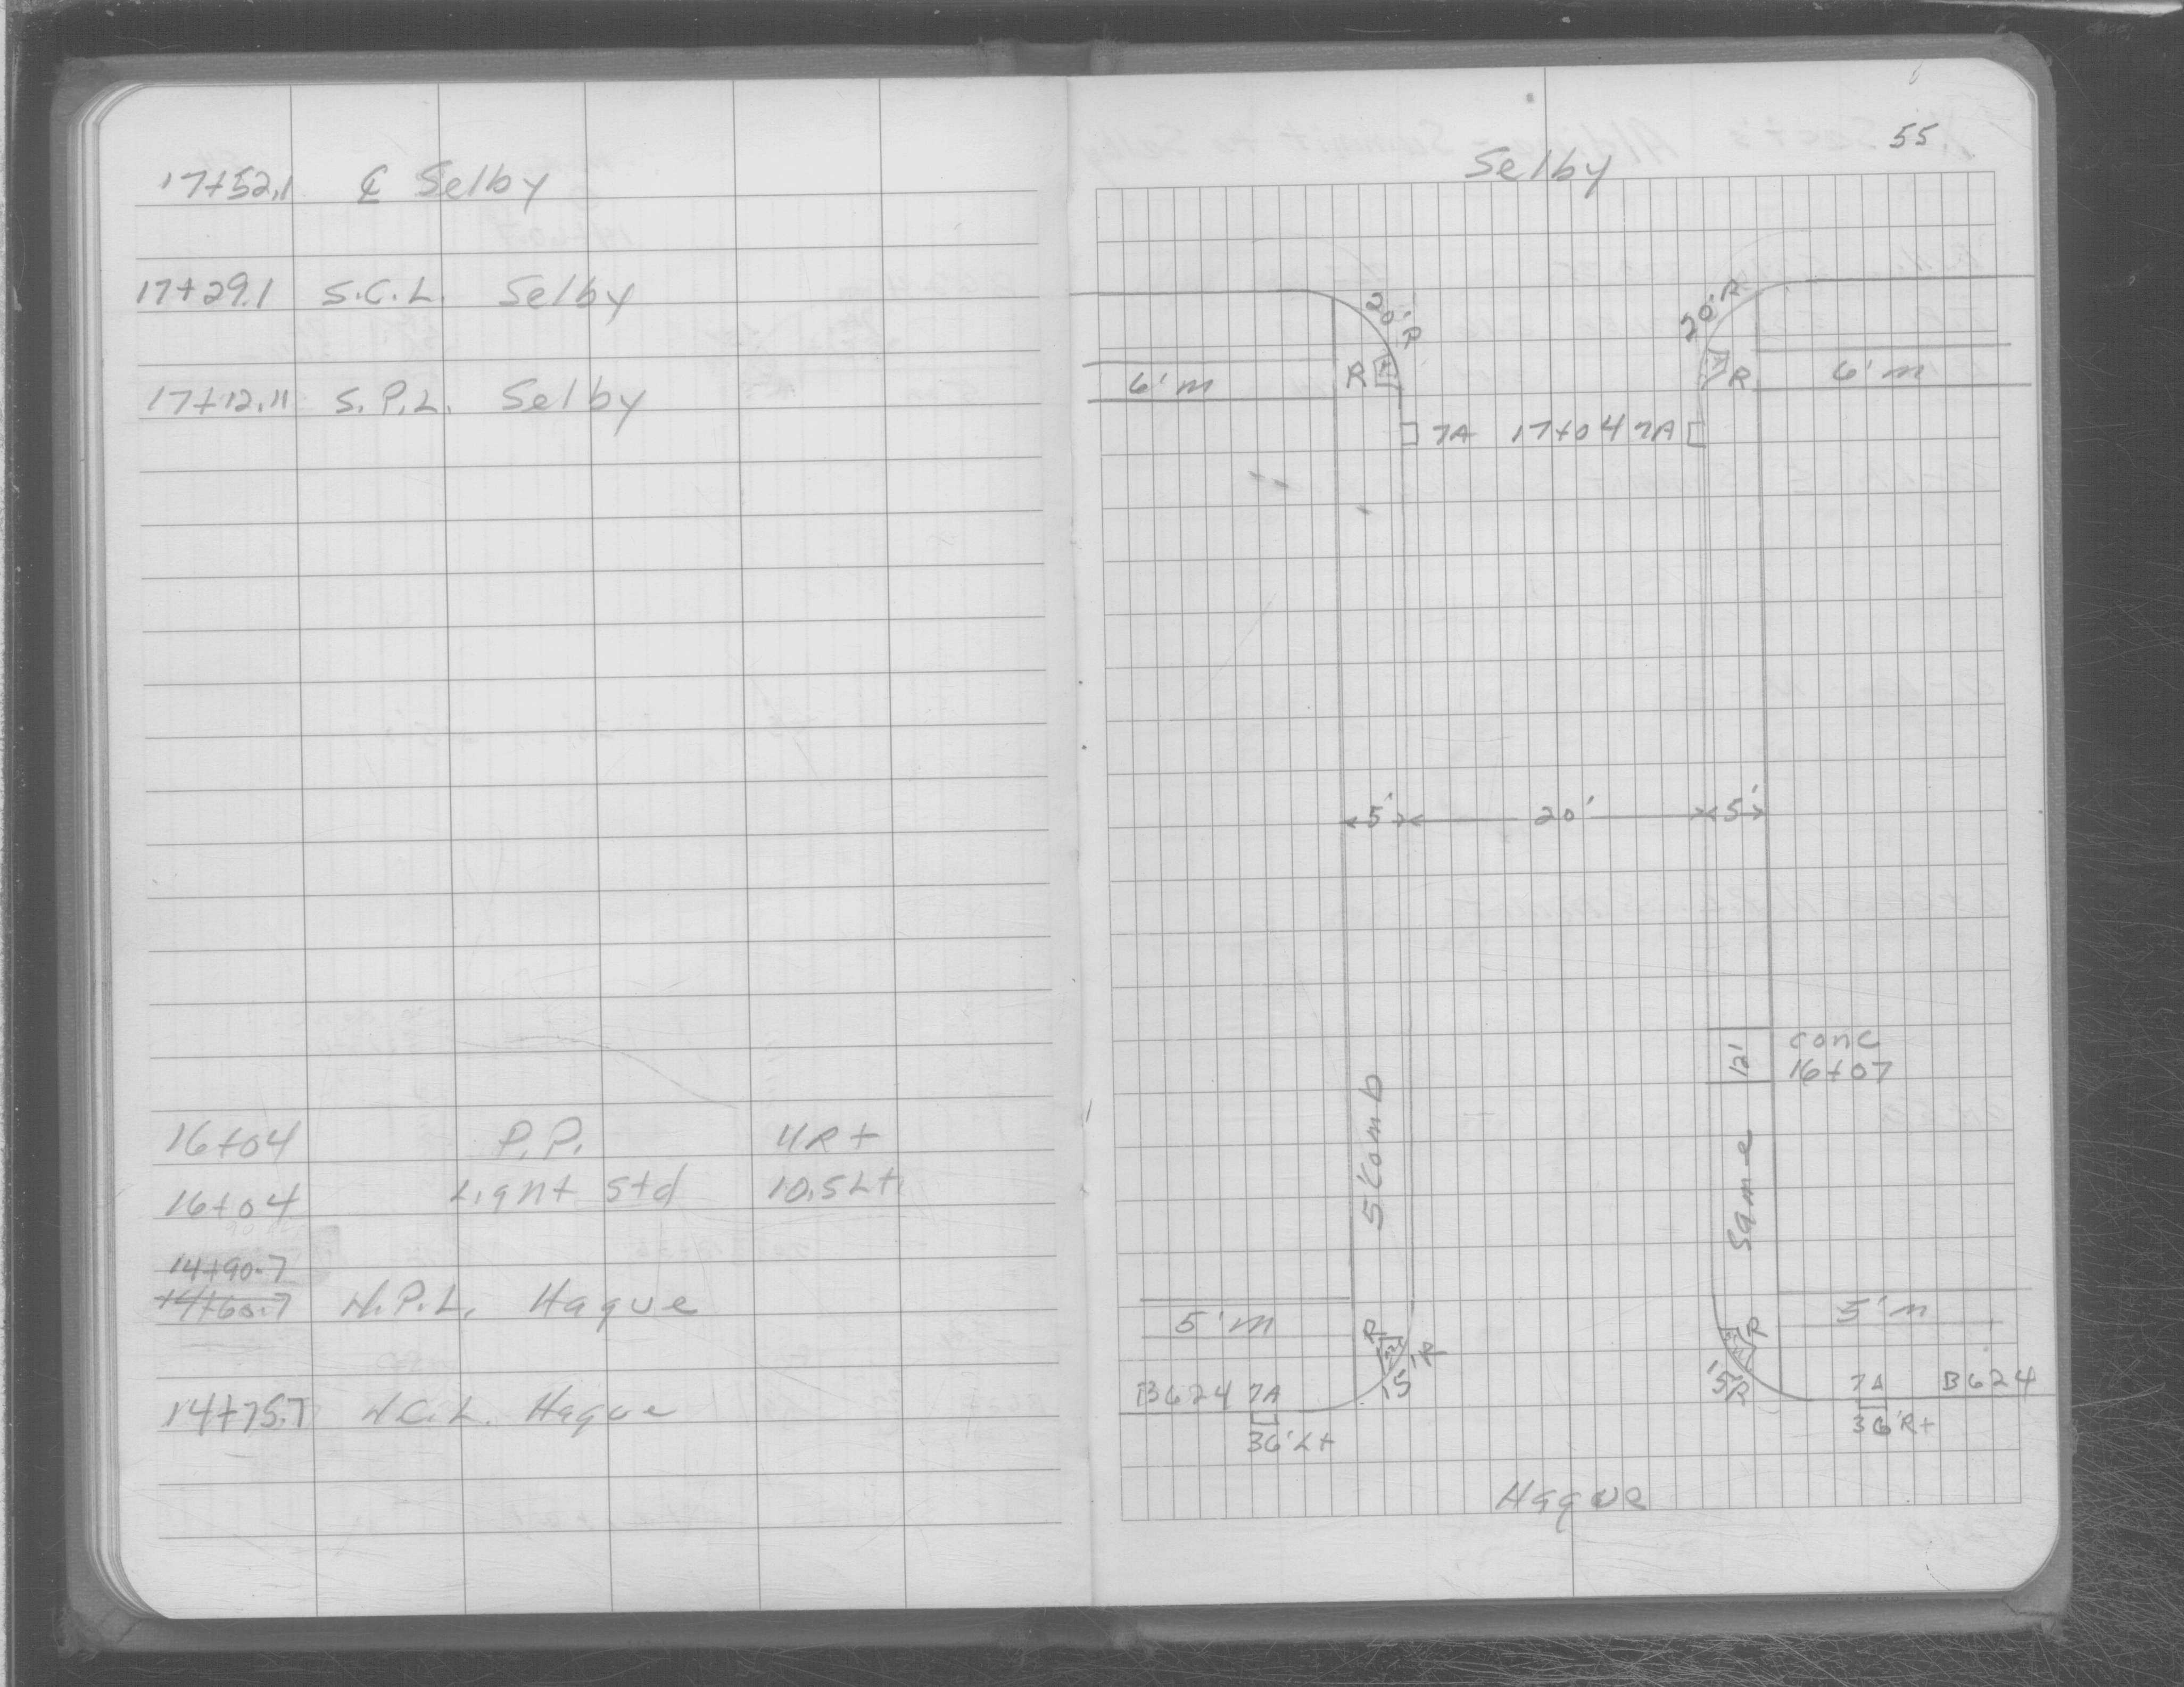 17+52.1 ℄ Selby
17+29.1 S.C.L. Selby
17+12.11 S.P.L. Selby
16+04 P.P. 11Rt
16+04 Light Std 10.5Lt
14+90.7
14+60.7 N.P.L. Hague
14+75.7 N.C.L. Hague
55
Selby
20'R 20'R
R R
6'm 6'm
7A 17+04 7A
5' 20' 5'
conc
12' 16+07
5'Comb Same
5'm 5'm
R R
15'R 15'R
B624 7A 7A B624
36'Lt 36'Rt
Hague